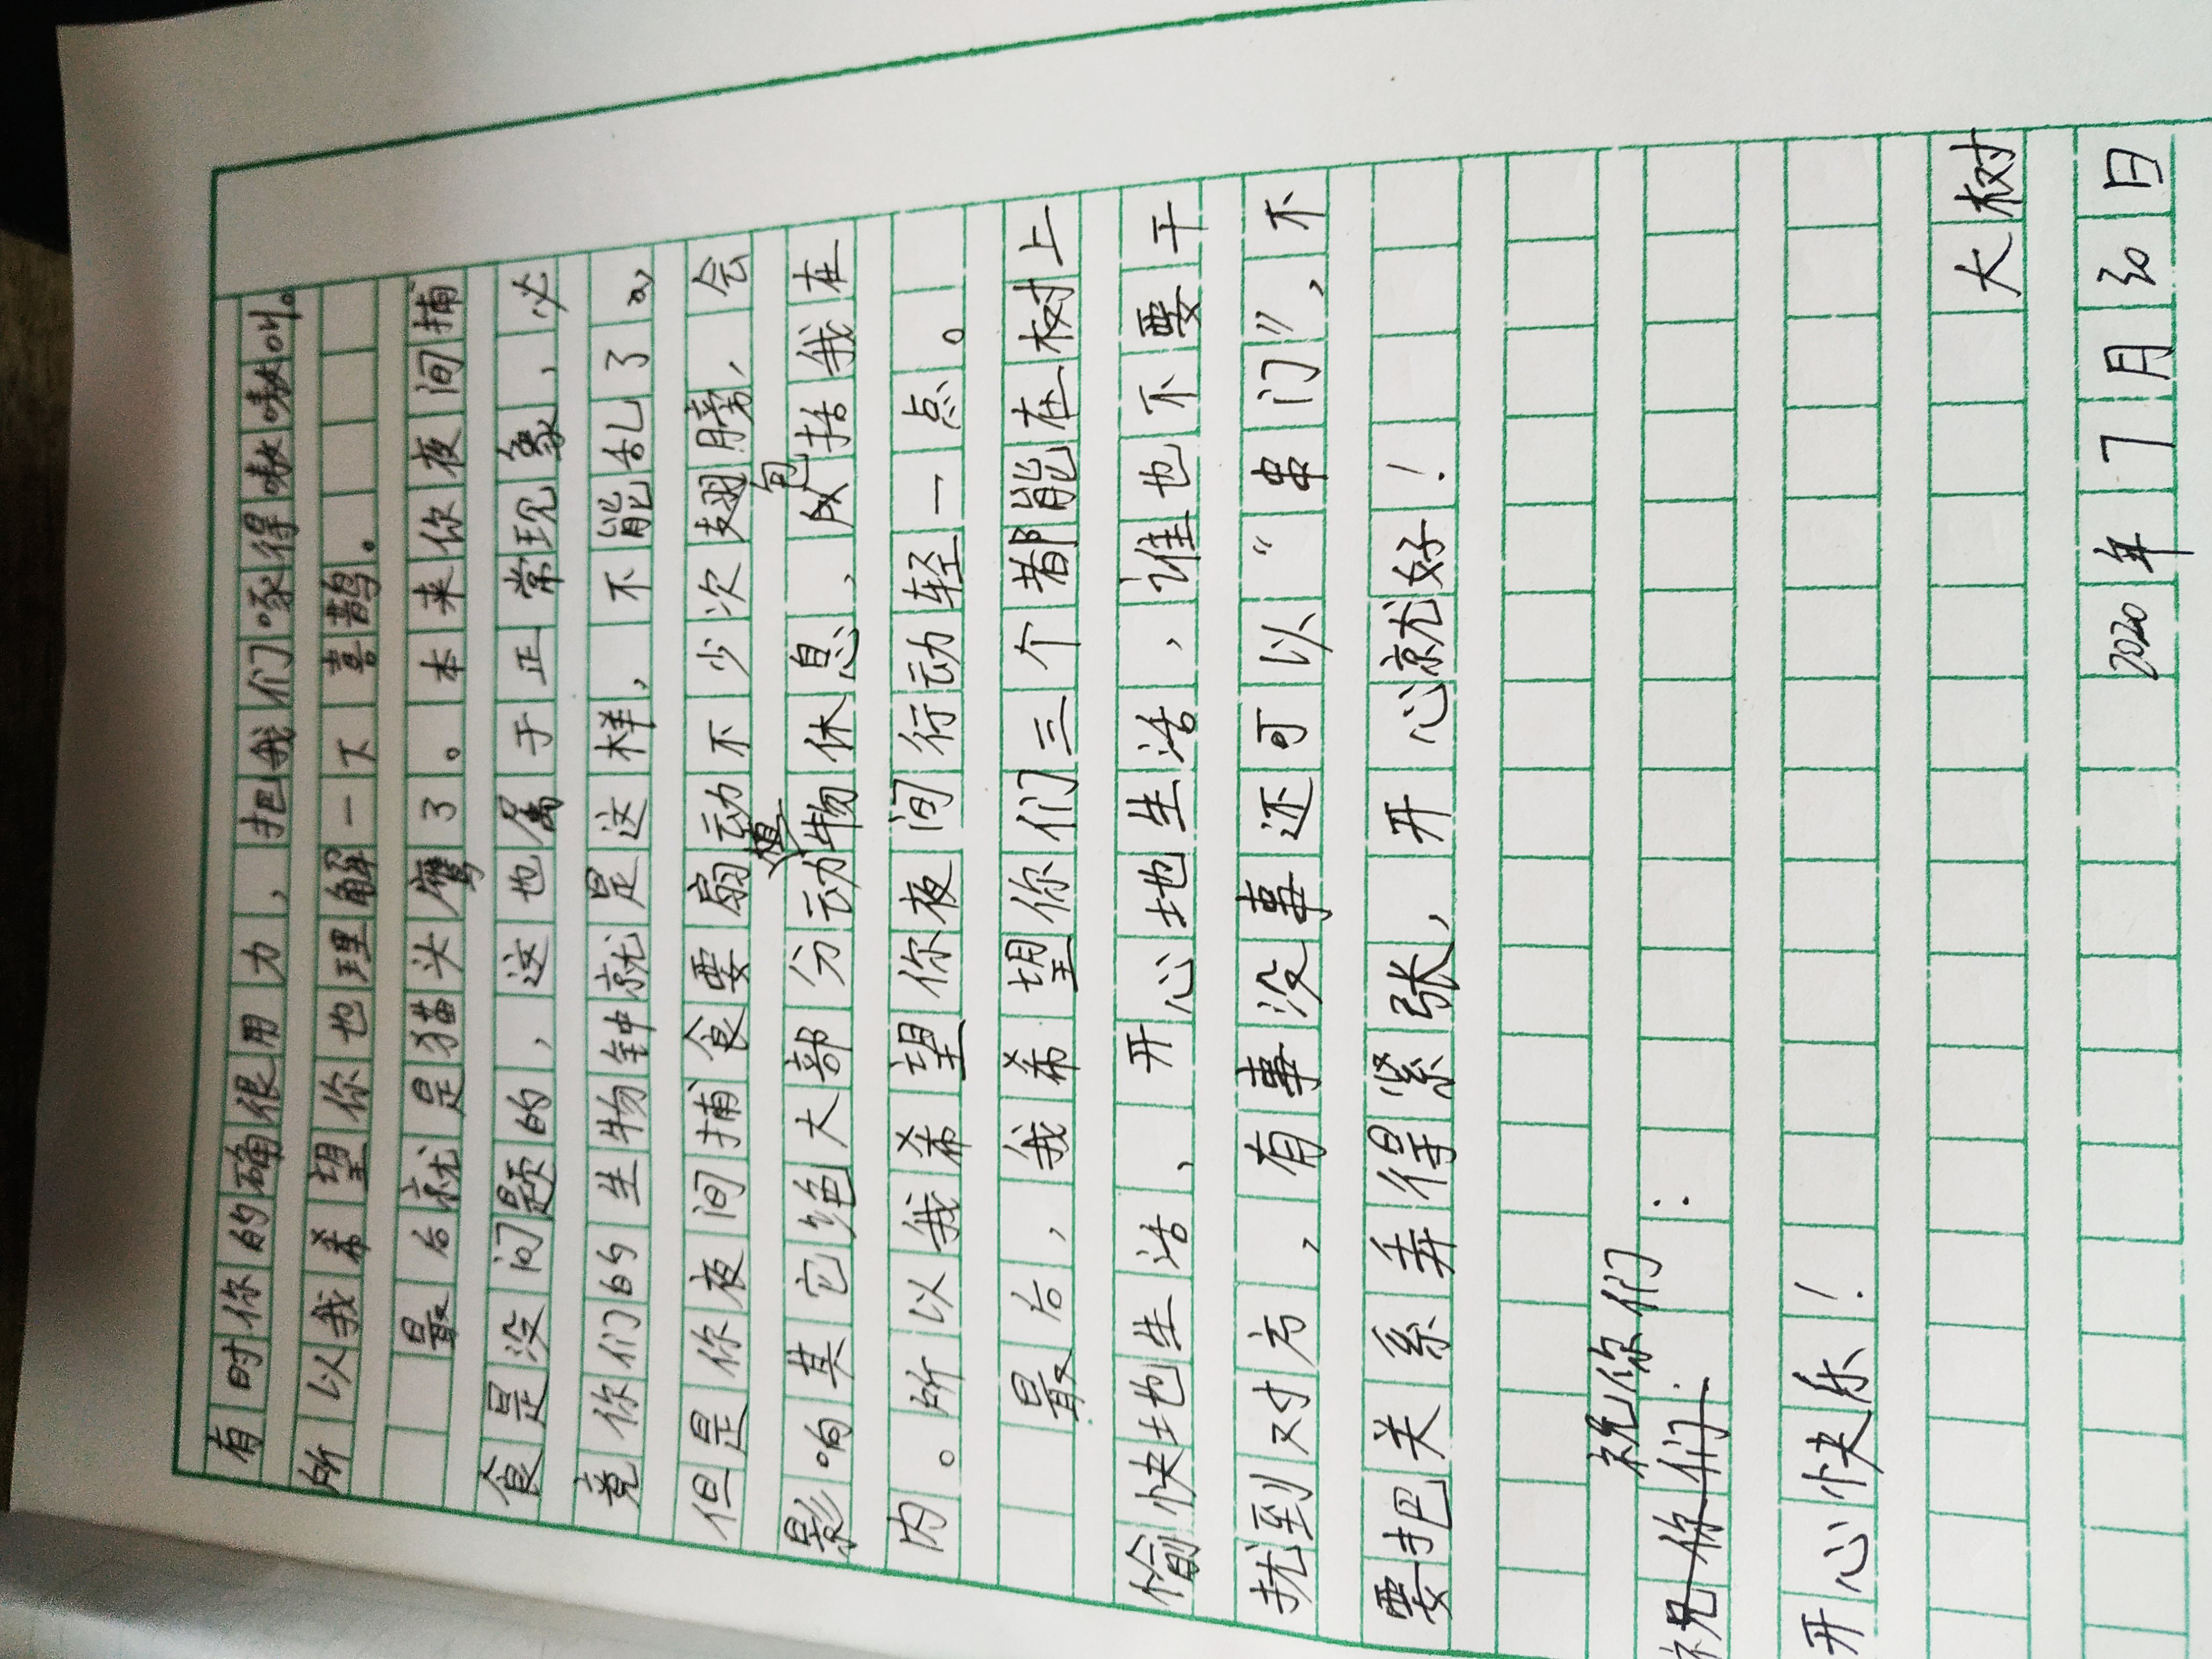 有时你的确很用力，把我们啄得嗷嗷叫。
所以我希望你也理解一下喜鹊。
最后就是猫头鹰了。本来你夜间捕
食是没问题的，这也属于正常现象，必
竟你们的生物钟就是这样，不能乱了。
但是你夜间捕食要扇动不少次翅膀，会
影响其它绝大部分动植物休息，包括我在
内。所以我希望你夜间行动轻一点。
最后，我希望你们三个都能在树上
愉快地生活、开心地生活，谁也不要干
扰到对方，有事没事还可以“串门”，不
要把关系弄得紧张，开心就好！
祝你们：
开心快乐！
大树
2020年7月30日